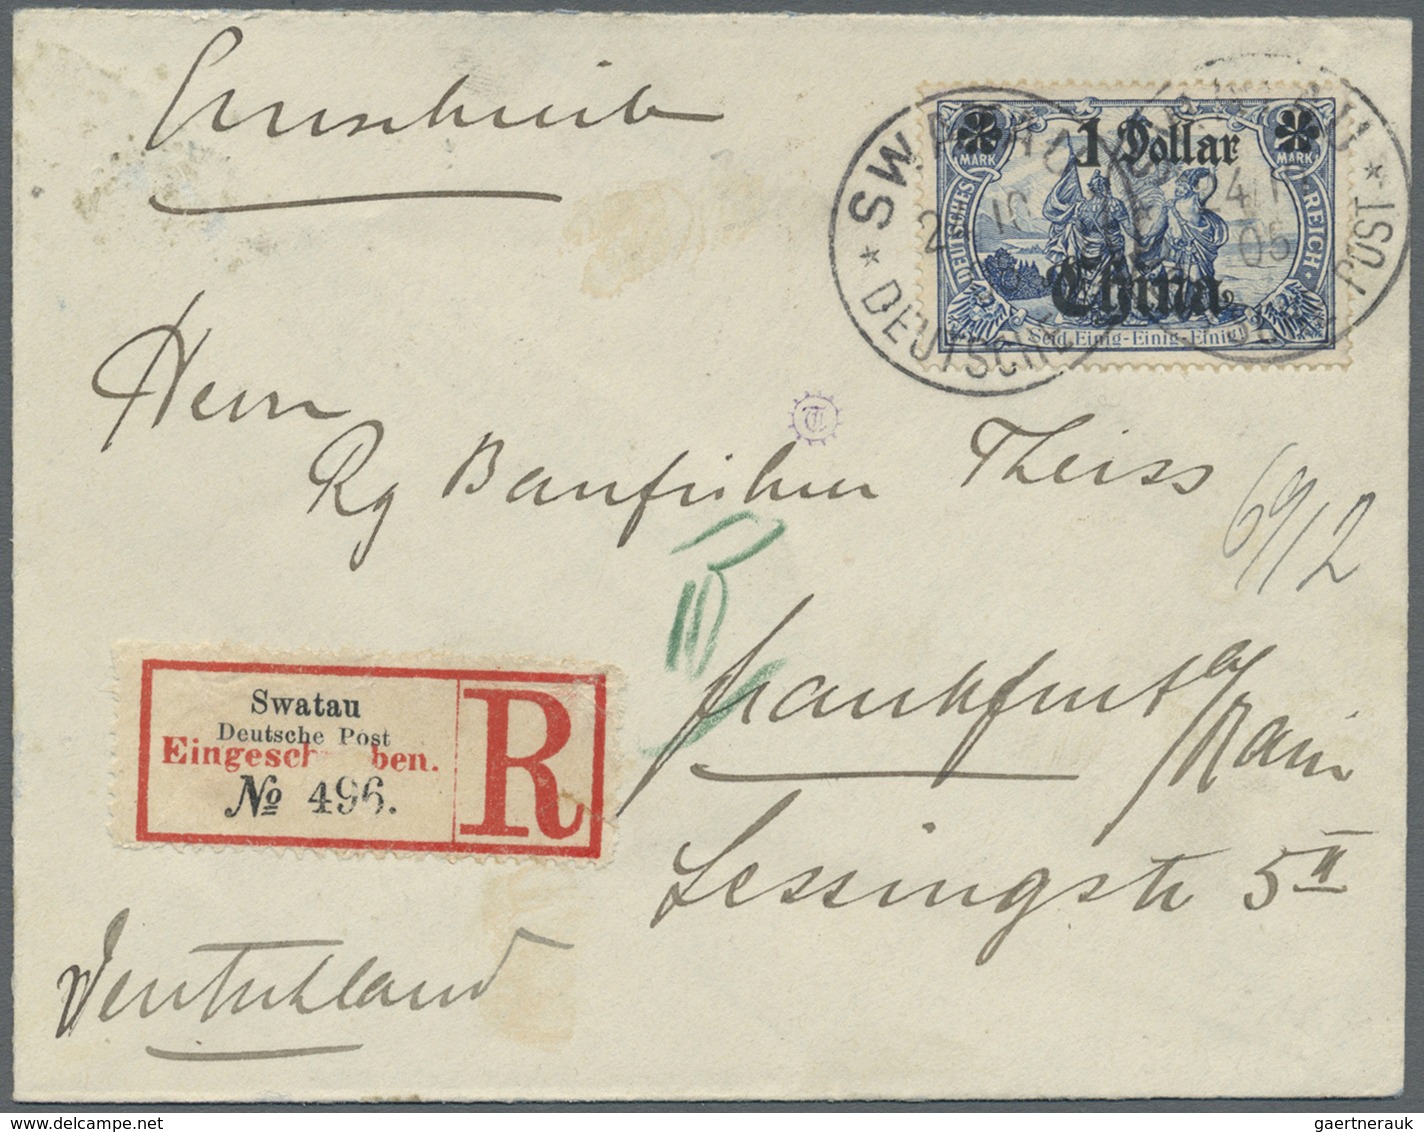 Einschreiben
1 Dollar
MARK MARK
DEUTSCHES REICH
China
Seid Einig-Einig-Einig
SWATAU
24/10
05
DEUTSCHE POST
Herrn
T
Rg Bauführer Theiss
69/12
Frankfurt a/
Main
Swatau
Deutsche Post
Eingesch ben.
R
№ 496.
Lessingstr 5 II
Deutschland
www.delcampe.net
gaertnerauk